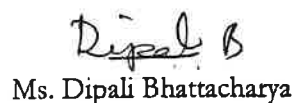 Dipali B
Ms. Dipali Bhattacharya